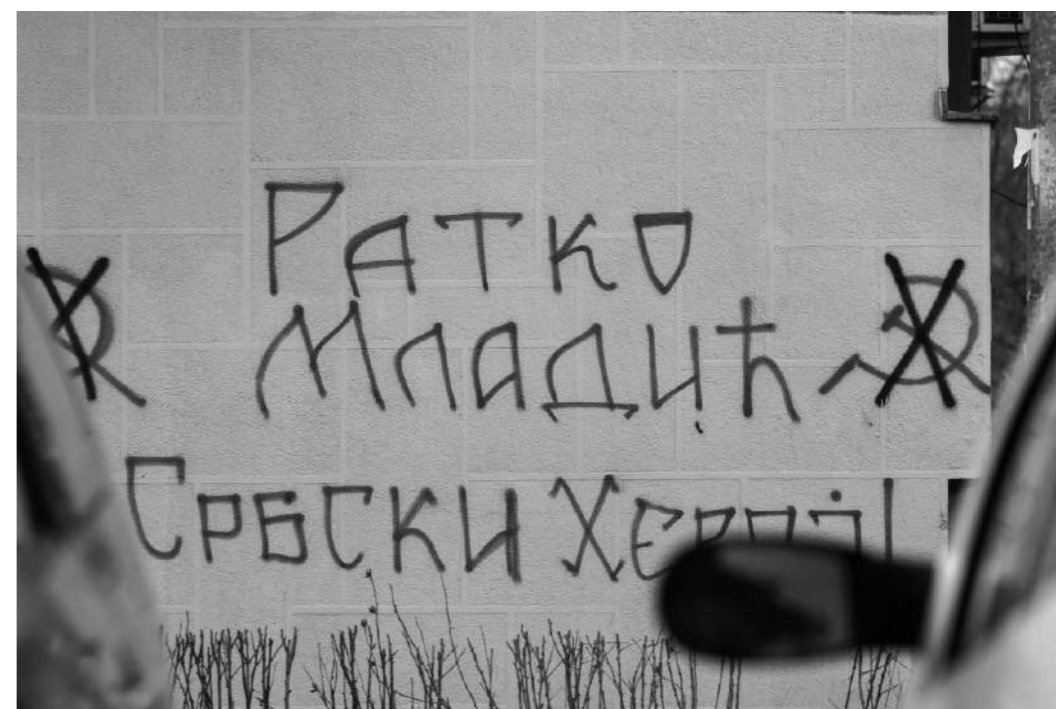 Ратко
Младић
Србски Херој!